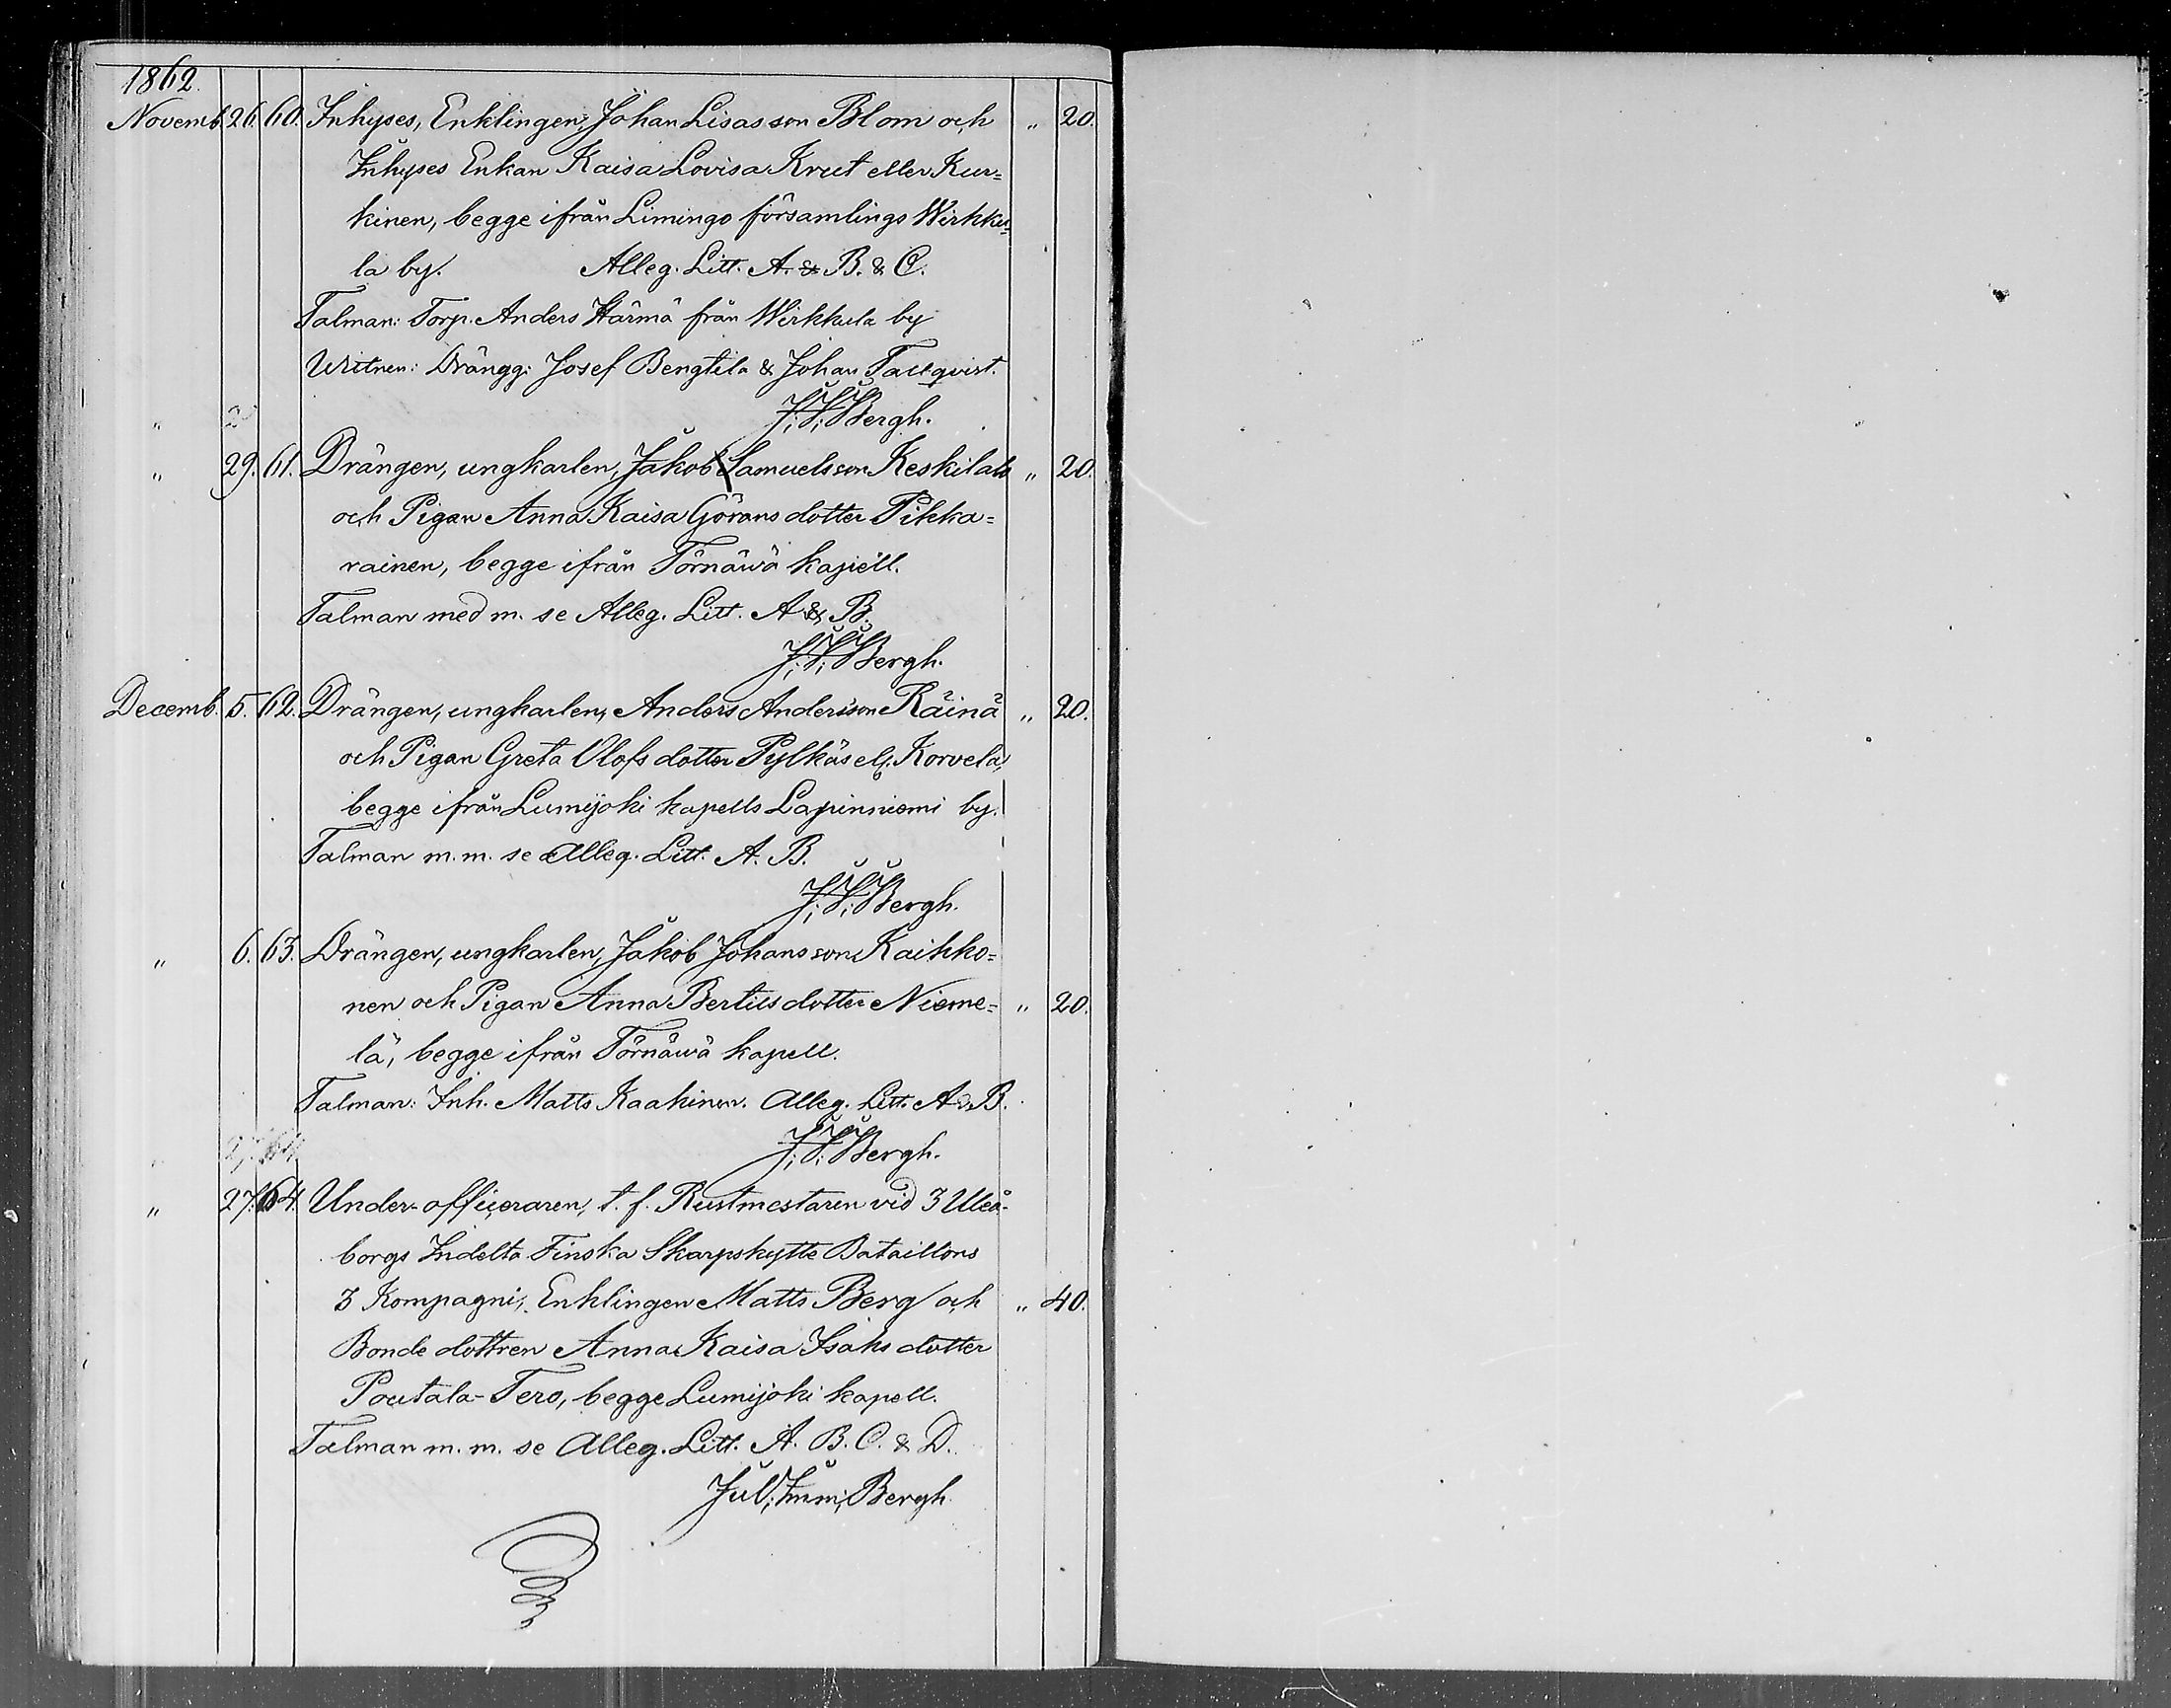 1862.
Novemb. 26. 60. Inhyses, Enklingen, Johan Lisasson Blom och „ 20.
Inhyses Enkan Kaisa Lovisa Krut eller Kur=
kinen, begge ifrån Limingo församlings Wirkku=
la by. Alleg. Litt. A. & B. & C.
Talman: Torp. Anders Härmä från Wirkkula by
Witnen: Drängg: Josef Bengtila & Johan Tallqvist.
J: I: Bergh.
„ 29. 61. Drängen, ungkarlen, Jakob Samuelsson Keskilalo „ 20.
och Pigan Anna Kaisa Görans dotter Pikka=
rainen, begge ifrån Törnäwä kapell.
Talman med m. se Alleg. Litt. A & B.
J: I: Bergh.
Decemb. 5. 62. Drängen, ungkarlen, Anders Andersson Räinä „ 20.
och Pigan Greta Olofs dotter Pylkäs elr. Korvela,
begge ifrån Lumijoki kapells Lapinniemi by.
Talman m. m. se Alleg. Litt. A. B.
J: I: Bergh.
„ 6. 63. Drängen, ungkarlen, Jakob Johansson Kaikko=
nen och Pigan Anna Bertils dotter Nieme= „ 20.
lä, begge ifrån Törnäwä kapell.
Talman: Inh. Matts Kaakinen. Alleg. Litt. A & B.
J: I: Bergh.
„ 27. 64. Under-officeraren, t. f. Rustmestaren vid 3 Uleå-
borgs Indelta Finska Skarpskytte Bataillons
3 Kompagni, Enklingen Matts Berg och „ 40.
Bonde dottren Anna Kaisa Isaks dotter
Poutala-Tero, begge Lumijoki kapell.
Talman m. m. se Alleg. Litt. A. B. C. & D.
Jul: Imm: Bergh